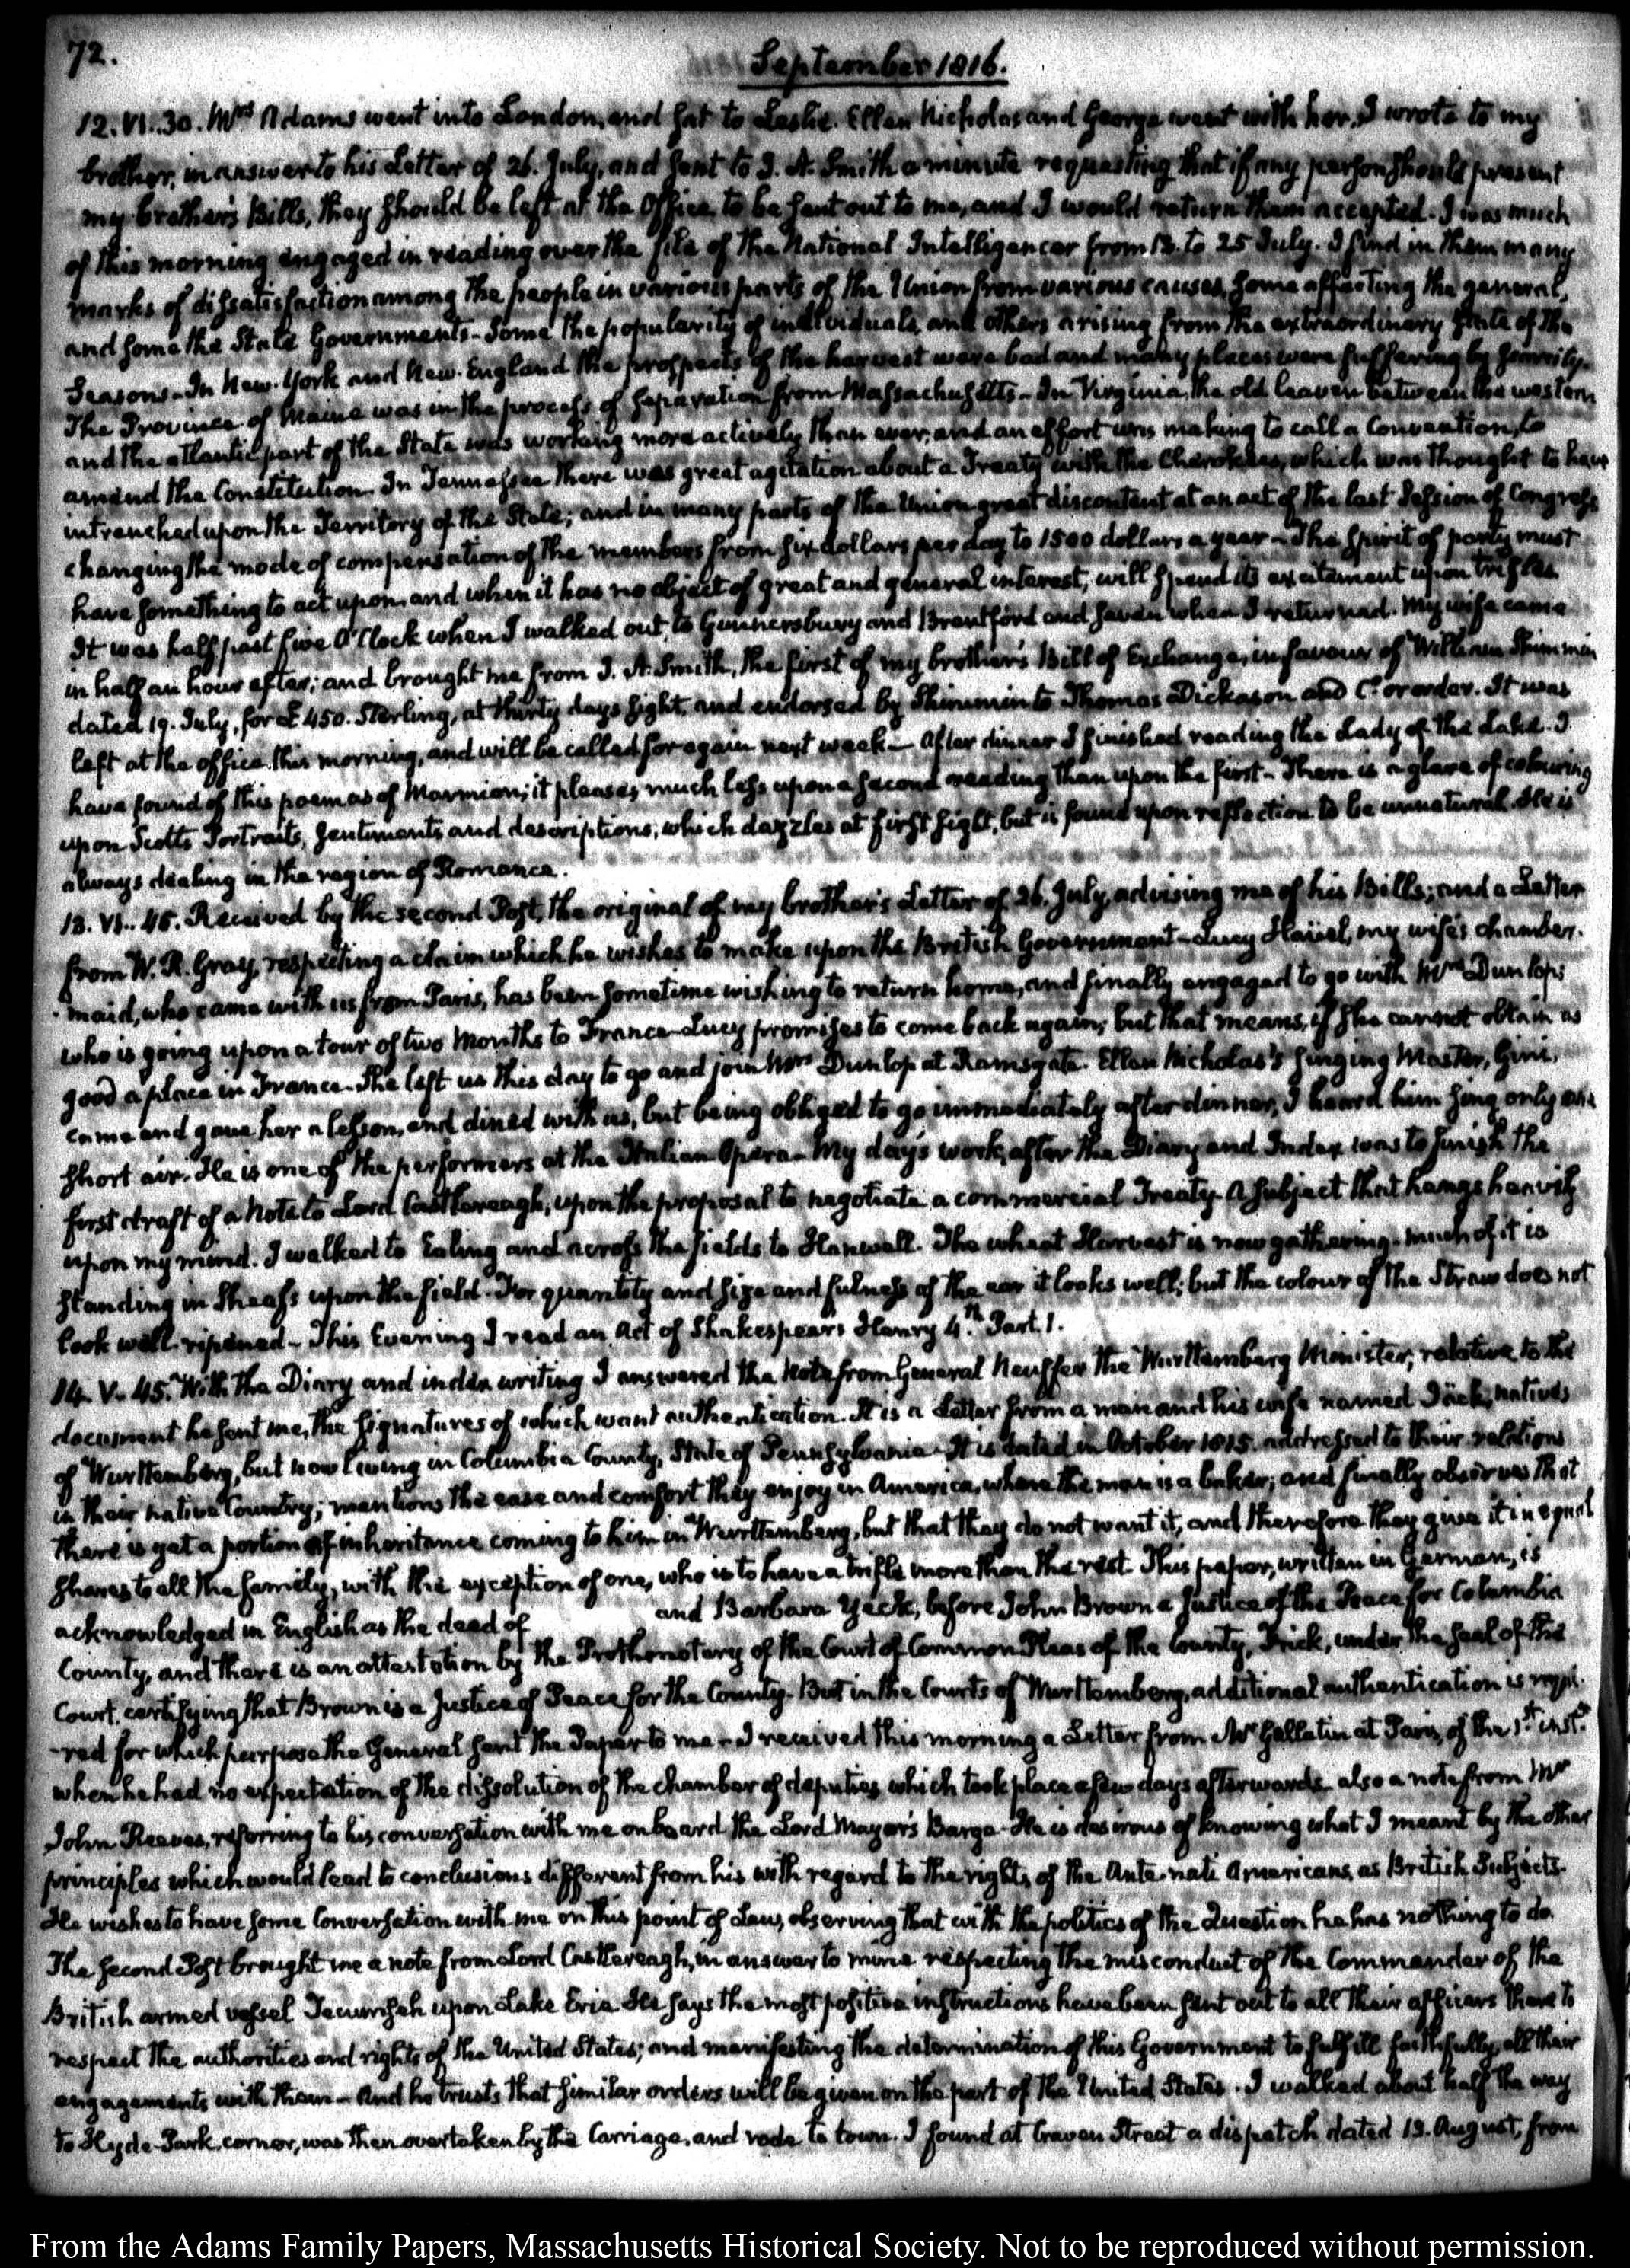 72.
September 1816.
12. VI..30. Mrs Adams went into London, and sat to Leslie. Ellen Nicholas and George went with her. I wrote to my
brother, in answer to his Letter of 26. July, and sent to J. A. Smith a minute requesting that if any person should present
my brother's Bills, they should be left at the Office to be sent out to me, and I would return them accepted. I was much
of this morning engaged in reading over the file of the National Intelligencer from 13. to 25 July. I find in them many
marks of dissatisfaction among the people in various parts of the Union from various causes, some affecting the general,
and some the State Governments - Some the popularity of individuals, and others arising from the extraordinary state of the
Seasons - In New-York and New-England the prospects of the harvest were bad and many places were suffering by scarcity.
The Province of Maine was in the process of separation from Massachusetts - In Virginia, the old leaven between the western
and the atlantic part of the State was working more actively than ever, and an effort was making to call a Convention, to
amend the Constitution. In Tennessee there was great agitation about a Treaty with the Cherokees, which was thought to have
intrenched upon the Territory of the State; and in many parts of the Union great discontent at an act of the last Session of Congress
changing the mode of compensation of the members from six dollars per day to 1500 dollars a year - The spirit of party must
have something to act upon, and when it has no object of great and general interest, will spend its excitement upon trifles
It was half past five O'Clock when I walked out, to Gunnersbury and Brentford and seven when I returned. My wife came
in half an hour after; and brought me from J. A. Smith, the first of my brother's Bill of Exchange, in favour of William Shimmin
dated 19. July, for £450. Sterling, at thirty days sight, and endorsed by Shimmin to Thomas Dickason and Co. or order. It was
left at the office this morning, and will be called for again next week - After dinner I finished reading the Lady of the Lake. I
have found of this poem as of Marmion; it pleases much less upon a second reading than upon the first - There is a glare of colouring
upon Scott's Portraits, sentiments and descriptions, which dazzles at first sight, but is found upon reflection to be unnatural. He is
always dealing in the region of Romance.
13. VI..45. Received by the second Post, the original of my brother's Letter of 26. July, advising me of his Bills; and a Letter
from W. R. Gray, respecting a claim which he wishes to make upon the British Government - Lucy Haüel, my wife's chamber-
-maid, who came with us from Paris, has been sometime wishing to return home, and finally engaged to go with Mrs Dunlop;
who is going upon a tour of two Months to France - Lucy promises to come back again; but that means, if she cannot obtain as
good a place in France - She left us this day to go and join Mrs Dunlop at Ramsgate. Ellen Nicholas's singing Master, Gini,
came and gave her a lesson, and dined with us, but being obliged to go immediately after dinner, I heard him sing only one
short air. He is one of the performers at the Italian Opera - My day's work, after the Diary and Index was to finish the
first draft of a Note to Lord Castlereagh, upon the proposal to negotiate a commercial Treaty. A subject that hangs heavily
upon my mind. I walked to Ealing and across the fields to Hanwell. The wheat Harvest is now gathering - much of it is
standing in Sheafs upon the field. For quantity and size and fulness of the ear it looks well; but the colour of the Straw does not
look well ripened - This Evening I read an Act of Shakespear's Henry 4.th Part. 1.
14. V..45. With the Diary and index writing I answered the Note from General Neuffer the Wurttemberg Minister, relative to the
document he sent me, the signatures of which want authentication. It is a Letter from a man and his wife named Jäck, natives
of Wurttemberg, but now living in Columbia County, State of Pennsylvania - It is dated in October 1815. addressed to their relations
in their native Country; mentions the ease and comfort they enjoy in America, where the man is a baker; and finally observes that
there is yet a portion of inheritance coming to him in Wurttemberg, but that they do not want it, and therefore they give it in equal
shares to all the family, with the exception of one, who is to have a trifle more than the rest. This paper, written in German, is
acknowledged in English as the deed of and Barbara Yeck, before John Brown a Justice of the Peace for Columbia
County, and there is an attestation by the Prothonotary of the Court of Common Pleas of the County, Frick, under the seal of the
Court, certifying that Brown is a Justice of Peace for the County - But in the Courts of Wurttemberg, additional authentication is requi-
-red for which purpose the General sent the Paper to me - I received this morning a Letter from Mr Gallatin at Paris, of the 1.st inst.t
when he had no expectation of the dissolution of the chamber of deputies which took place a few days afterwards - also a note from Mr
John Reeves, referring to his conversation with me on board the Lord Mayor's Barge - He is desirous of knowing what I meant by the other
principles which would lead to conclusions different from his with regard to the rights of the Ante-nati Americans, as British Subjects.
He wishes to have some Conversation with me on this point of Law, observing that with the politics of the Question he has nothing to do.
The second Post brought me a note from Lord Castlereagh, in answer to mine respecting the misconduct of the Commander of the
British armed vessel Tecumseh upon Lake Erie. He says the most positive instructions have been sent out to all their officers there to
respect the authorities and rights of the United States; and manifesting the determination of this Government to fulfill faithfully all their
engagements with them - And he trusts that similar orders will be given on the part of the United States. I walked about half the way
to Hyde-Park corner, was then overtaken by the Carriage, and rode to town. I found at Craven Street a dispatch dated 13. August, from
From the Adams Family Papers, Massachusetts Historical Society. Not to be reproduced without permission.